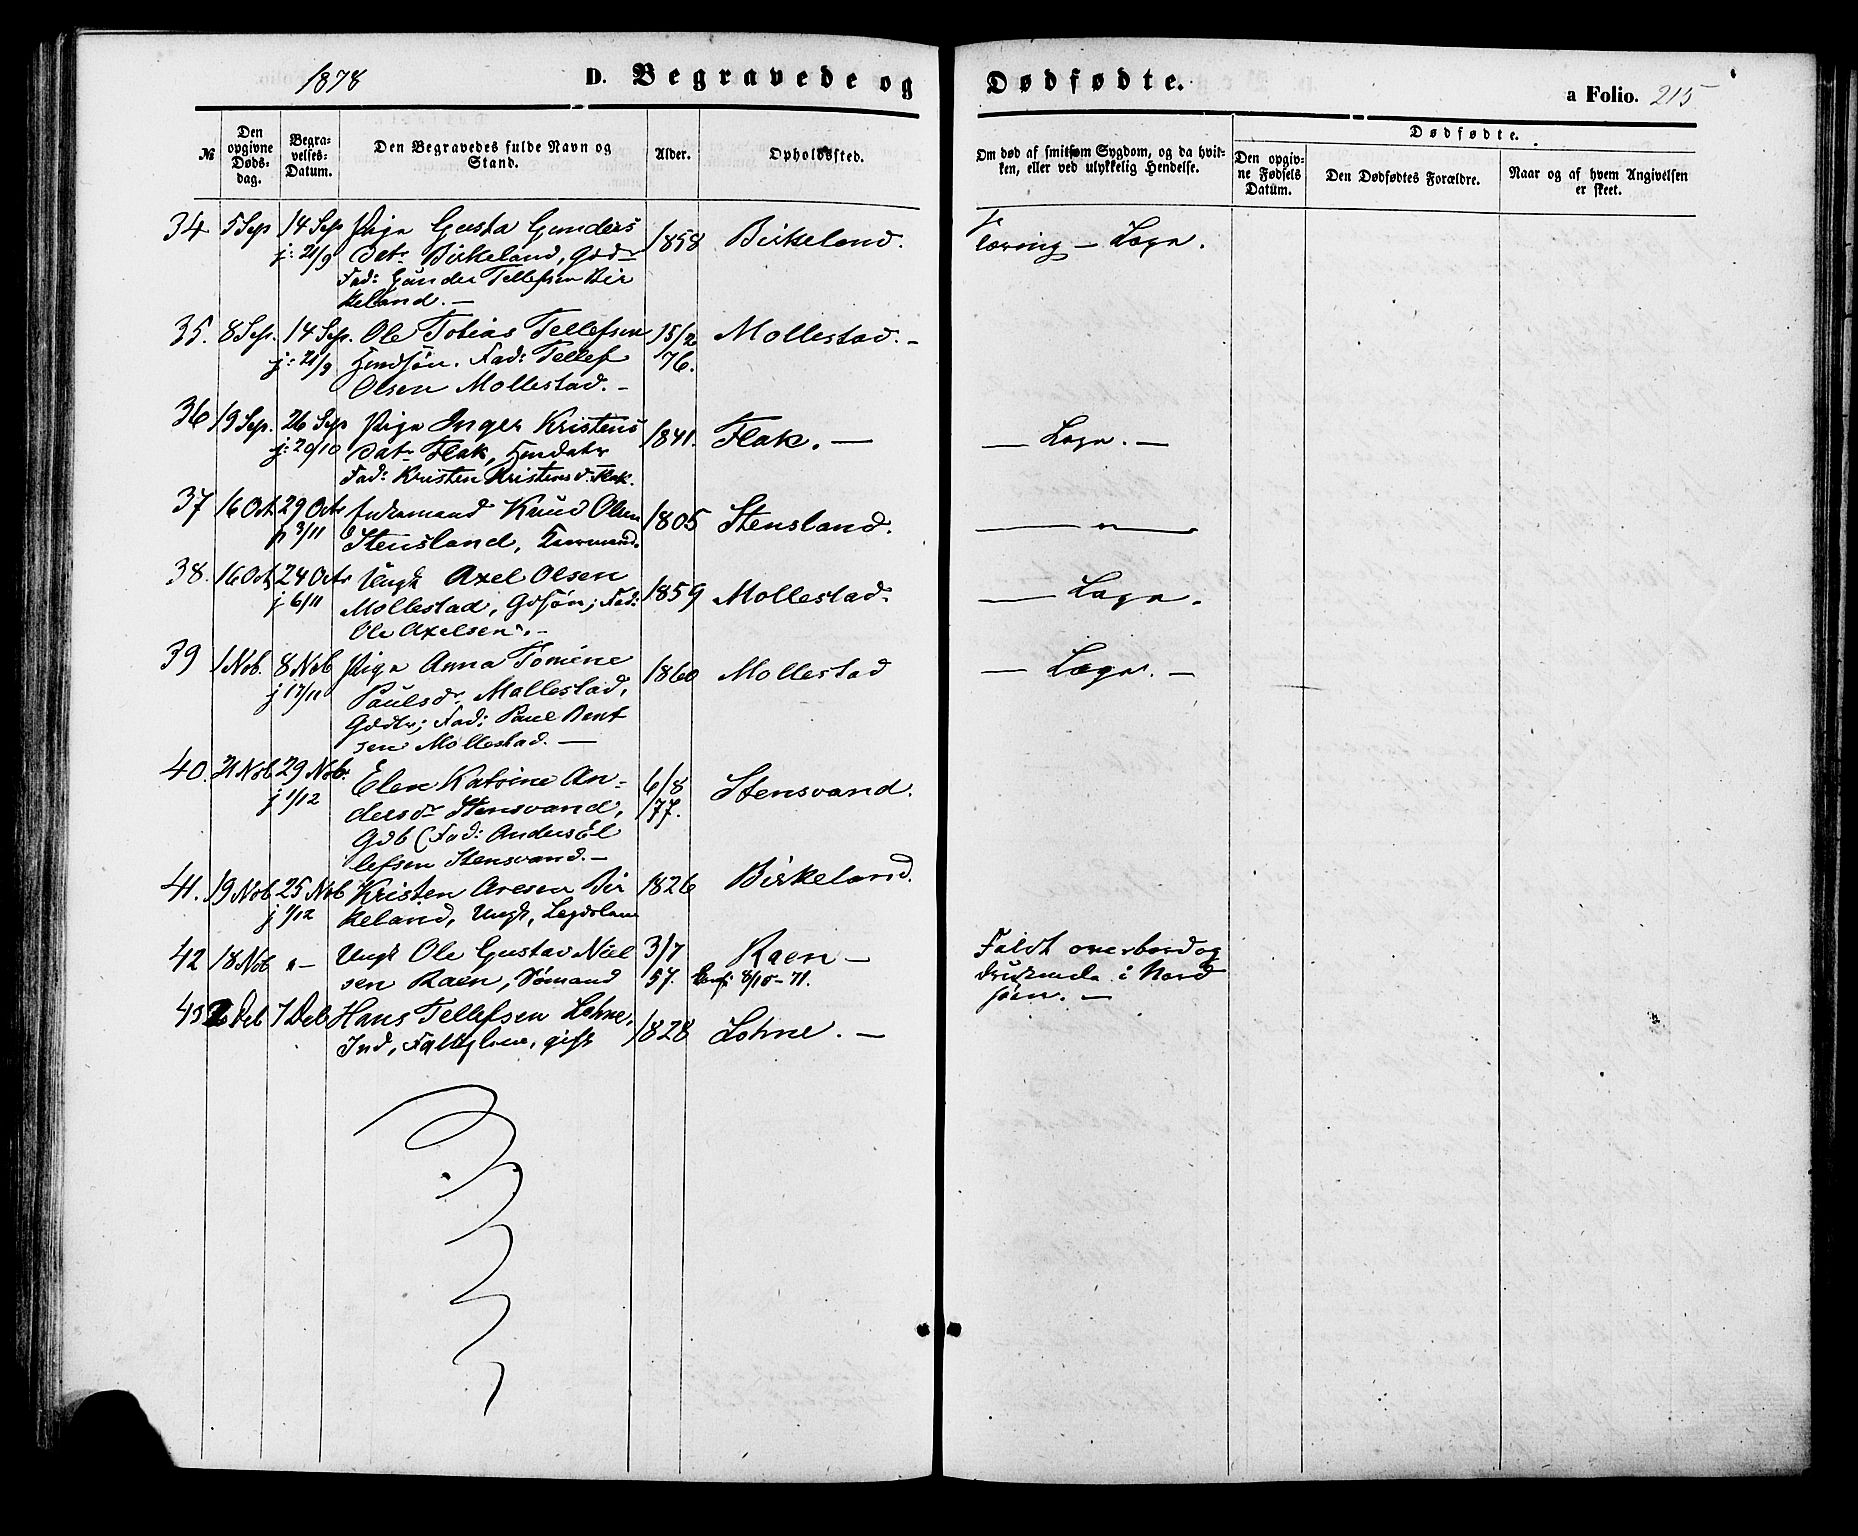 1878
D. Begravede og Dødfødte.
a Folio. 215
№
Den opgivne Døds-dag.
Begra-velses-Datum.
Den Begravedes fulde Navn og Stand.
Alder.
Opholdssted.
Om død af smitsom Sygdom, og da hvil-ken, eller ved ulykkelig Hendelse.
Dødfødte.
Den opgiv-ne Fødsels Datum.
Den Dødfødtes Forældre.
Naar og af hvem Angivelsen er skeet.
34 5 Sep 14 Sep Pige Gusta Gunders 1858 Birkeland. Tæring – Læge.
j: 21/9 datr Birkeland, Gdd
Fad: Gunder Tellefsen Bir
keland. –
35. 8 Sep. 14 Sep. Ole Tobias Tellefsen 15/2 76. Mollestad. –
j: 21/9 Fad: Tellef
Olsen Mollestad. –
36 19 Sep. 26 Sep Pige Inger Kristens 1841. Flak. – – Læge. –
j: 20/10 datr Flak,
Fad: Kristen Kristens. Flak.
37 16 Oct 29 Octr Knud Olsen 1805 Stensland. — " —
p 3/11 Stensland,
38. 16 Oct 24 Octr Ungk Axel Olsen 1859 Mollestad. — Læge.
j 6/11 Mollestad, Gdsøn; Fad:
Ole Axelsen. –
39 1 Nob. 8 Nob Pige Anna Tomine 1860 Mollestad — Læge. –
j 17/11 Paulsdr Mollestad,
Gddtr; Fad: Paul Bent
sen Mollestad. —
40. 21 Nob 29 Nobr. Elen Katrine An- 6/8 /77. Stensvand.
j 1/12 dersdr Stensvand,
Gdb (Fad: Anders Øl
lefsen Stensvand. –
41. 19 Nob 25 Nob Kristen Aresen Bir 1826 Birkeland.
j 1/12 keland, Ungk, Legdslem
42 18 Nob " – Ungk Ole Gustav Niel 3/7 57. Raen – Faldt overbord og
sen Raen, Sømand Conf: 8/10–71. druknede i Nord
søen. –
43 2 Deb 7 Deb Hans Tellefsen Lohne, 1828 Lohne. –
Ind, gift